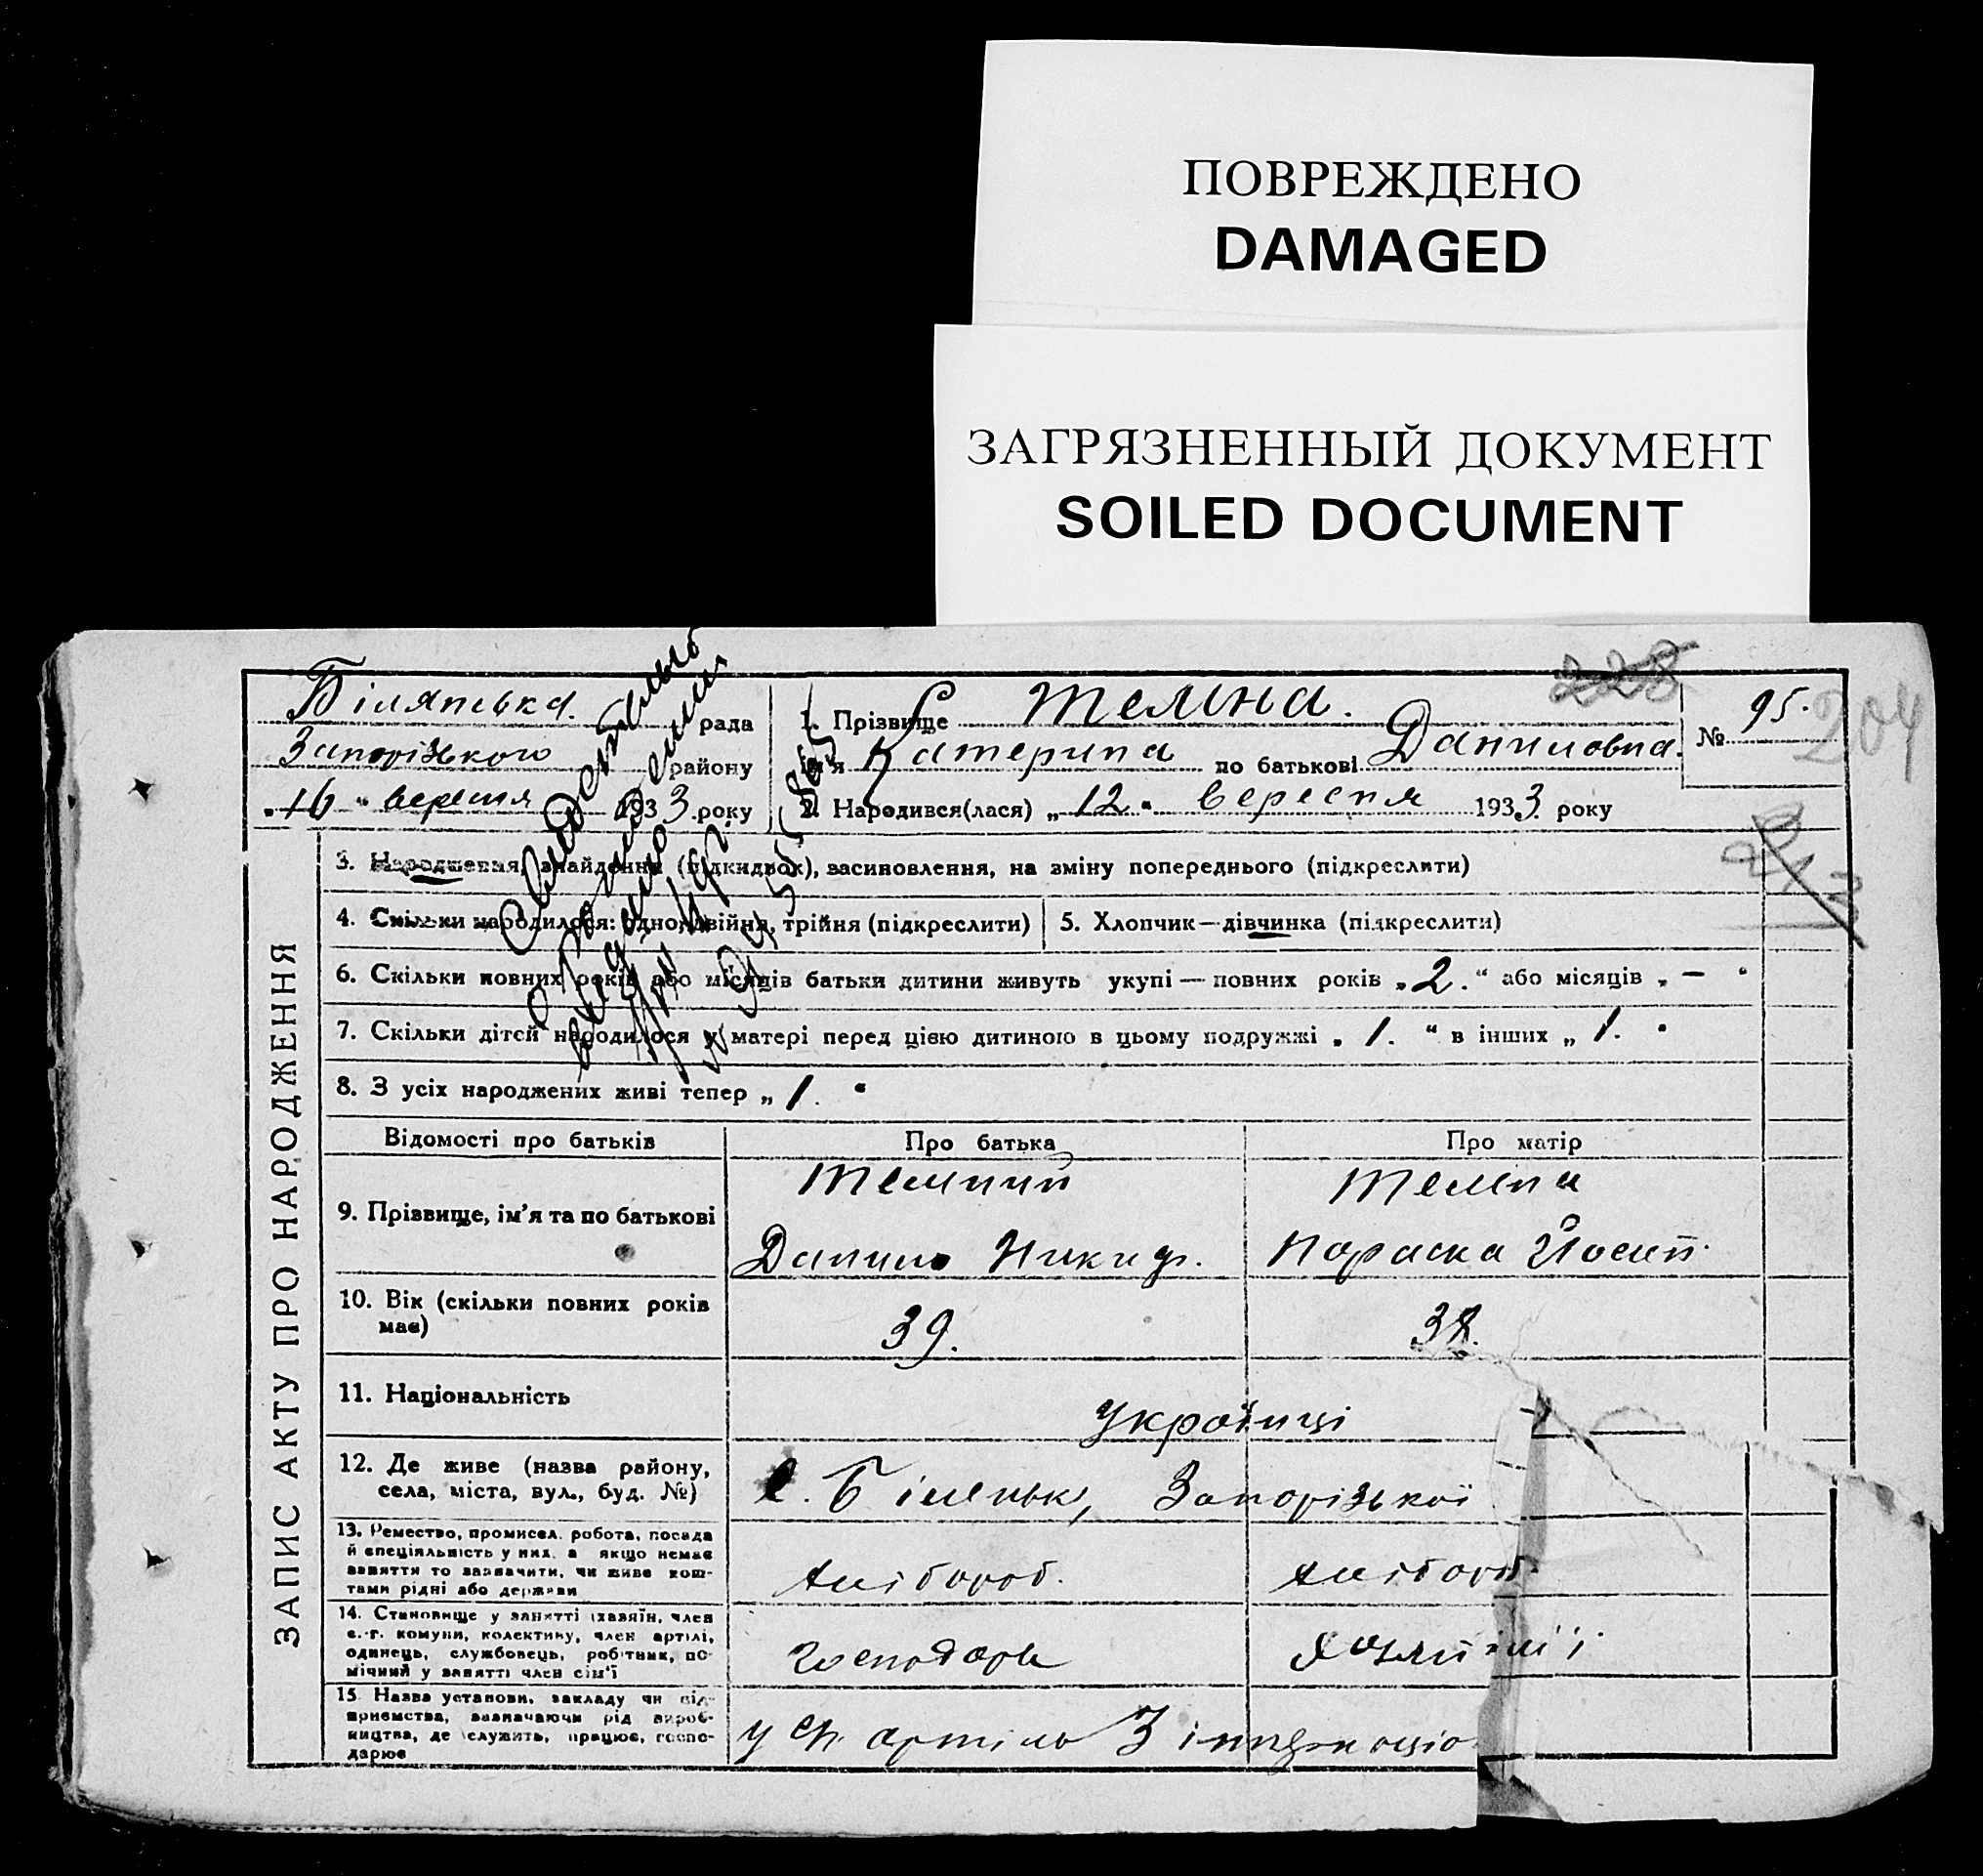 ПОВРЕЖДЕНО
DAMAGED
ЗАГРЯЗНЕННЫЙ ДОКУМЕНТ
SOILED DOCUMENT
228
204
Біляпська. рада
Запорізького району
„16 " вересня 1933 року
1. Прізвище Темна.
ім'я Катерина по батькові Даниловна.
2. Народився(лася) „ 12 " вересня 1933. року
№ 95.
213
ЗАПИС АКТУ ПРО НАРОДЖЕННЯ
3. Народження, знайдення (підкидвок), засиновлення, на зміну попереднього (підкреслити)
4. Скільки народилося: одно, двійня, трійня (підкреслити)
5. Хлопчик — дівчинка (підкреслити)
6. Скільки повних років або місяців батьки дитини живуть укупі — повних років „ 2. " або місяців „ — "
7. Скільки дітей народилося у матері перед цією дитиною в цьому подружжі „ 1. " в інших „ 1. "
8. З усіх народжених живі тепер „ 1. "
Відомості про батьків
Про батька
Про матір
9. Прізвище, ім'я та по батькові
Темний
Данило Никиф.
Темна
Параска Йосип.
10. Вік (скільки повних років має)
39.
38.
11. Національність
Українці
12. Де живе (назва району, села, міста, вул., буд. №)
с. Біленьке, Запорізької
13. Ремество, промисел, робота, посада
й спеціяльність у них, а якщо немає
заняття то зазначити, чи живе кош-
тами рідні або держави
хлібороб.
хлібороб.
14. Становище у занятті (хазяїн, член
с.-г. комуни, колективу, член артілі,
одинець, службовець, робітник, по-
мічний у занятті член сім'ї
господарь
15. Назва установи, закладу чи під-
приємства, зазначаючи рід вироб-
ництва, де служить, працює, госпо-
дарює
у с/г. артіль 3 інтернаціо